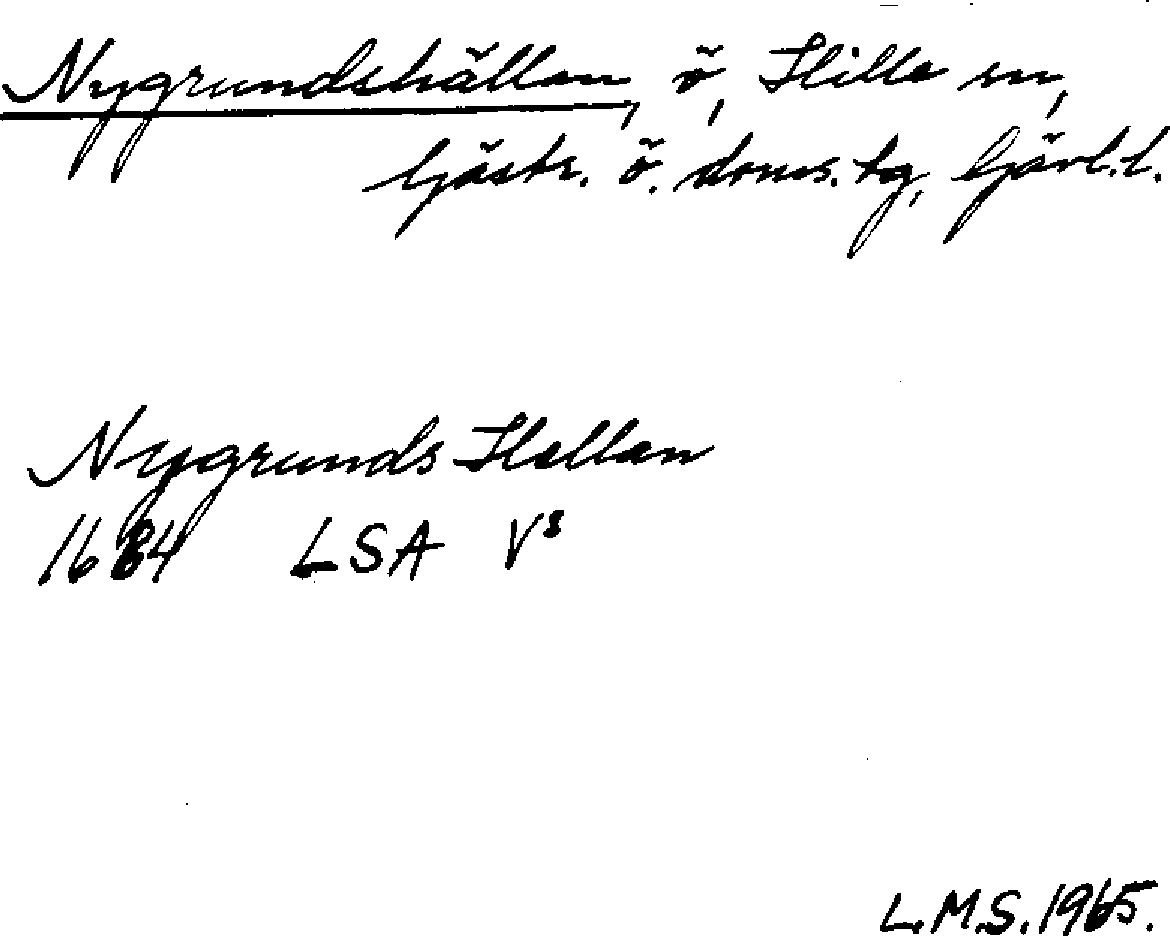 Nygrundshällan, ö, Hille sn,
Gästr. ö. doms.tg, Gävl.l.
Nygrunds Hellan
1684 LSA V³
L.M.S. 1965.